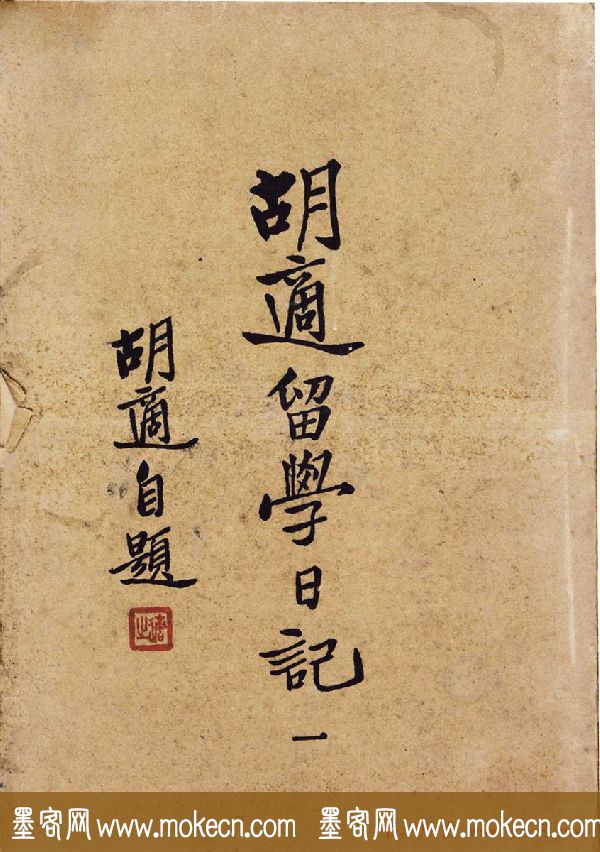 胡適留學日記 一
胡適自題
適之
墨客网 www.mokecn.com 墨客网 www.mokecn.com